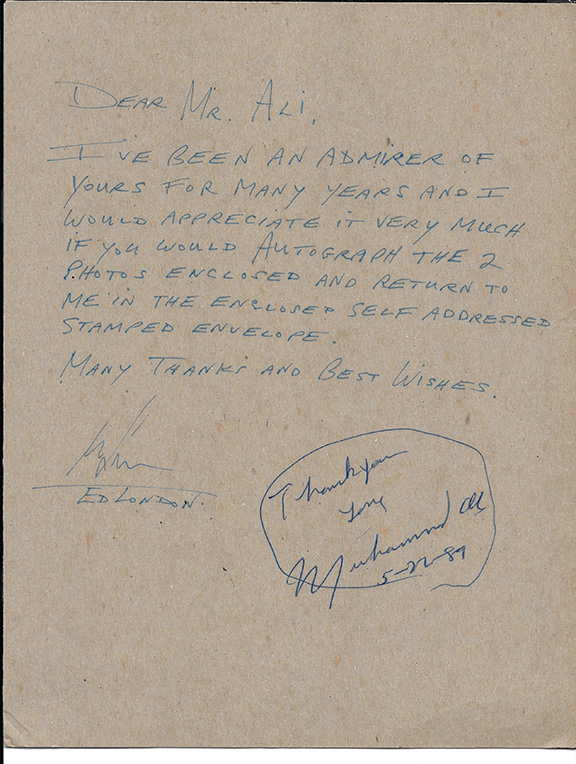 DEAR MR. ALI,
I'VE BEEN AN ADMIRER OF
YOURS FOR MANY YEARS AND I
WOULD APPRECIATE IT VERY MUCH
IF YOU WOULD AUTOGRAPH THE 2
PHOTOS ENCLOSED AND RETURN TO
ME IN THE ENCLOSED SELF ADDRESSED
STAMPED ENVELOPE.
MANY THANKS AND BEST WISHES.
ED LONDON.
Thank you
Love
Muhammad Ali
5-22-89